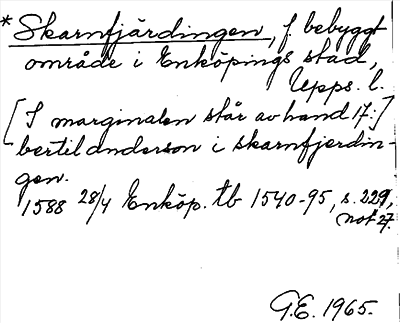 *Skarnfjärdingen, f. bebyggt
område i Enköpings stad,
Upps. l.
[I marginalen står av hand 17:]
bertil anderson i skarnfjerdin-
gen.
1588 28/4 Enköp. tb 1540-95, s. 229,
not 27.
G.E. 1965.